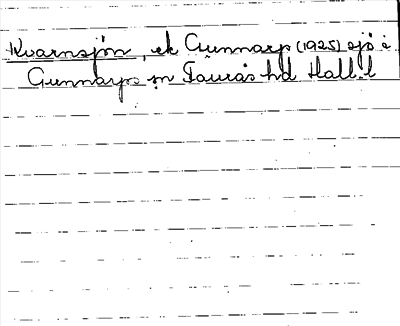 Kvarnsjön, ek Gunnarp (1925) sjö i
Gunnarps sn Faurås hd Hall. l